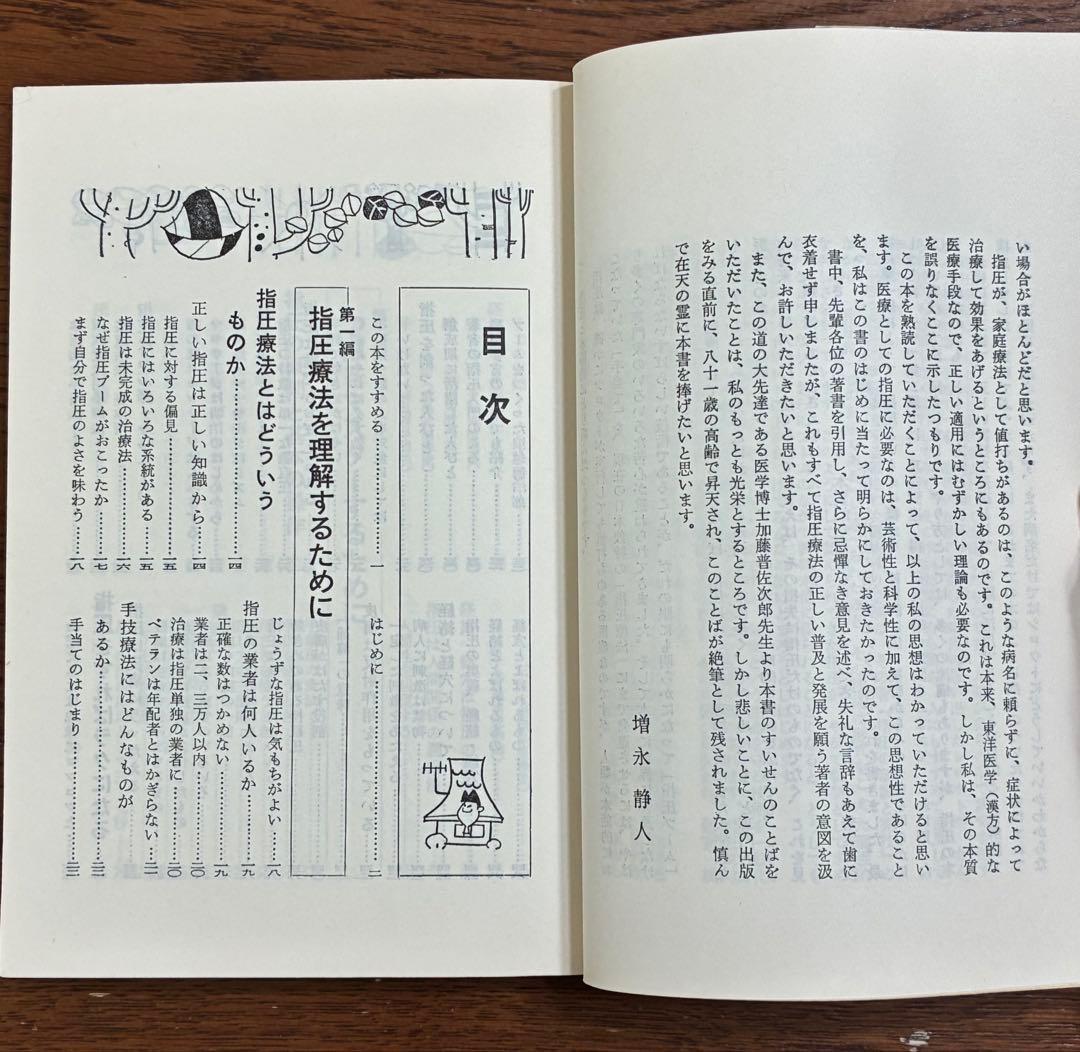 い場合がほとんどだと思います。
指圧が、家庭療法として値打ちがあるのは、このような病名に頼らずに、症状によって
治療して効果をあげるというところにもあるのです。これは本来、東洋医学（漢方）的な
医療手段なので、正しい適用にはむずかしい理論も必要なのです。しかし私は、その本質
を誤りなくここに示したつもりです。
この本を熟読していただくことによって、以上の私の思想はわかっていただけると思い
ます。医療としての指圧に必要なのは、芸術性と科学性に加えて、この思想性であること
を、私はこの書のはじめに当たって明らかにしておきたかったのです。
書中、先輩各位の著書を引用し、さらに忌憚なき意見を述べ、失礼な言辞もあえて歯に
衣着せず申しましたが、これもすべて指圧療法の正しい普及と発展を願う著者の意図を汲
んで、お許しいただきたいと思います。
また、この道の大先達である医学博士加藤普佐次郎先生より本書のすいせんのことばを
いただいたことは、私のもっとも光栄とするところです。しかし悲しいことに、この出版
をみる直前に、八十一歳の高齢で昇天され、このことばが絶筆として残されました。慎ん
で在天の霊に本書を捧げたいと思います。
増永静人
目次
この本をすすめる…………一
はじめに…………二
第一編
指圧療法を理解するために
指圧療法とはどういう
ものか…………一四
正しい指圧は正しい知識から……一四
指圧に対する偏見…………一五
指圧にはいろいろな系統がある……一五
指圧は未完成の治療法…………一六
なぜ指圧ブームがおこったか……一七
まず自分で指圧のよさを味わう……一八
じょうずな指圧は気もちがよい……一八
指圧の業者は何人いるか……一九
正確な数はつかめない…………一九
業者は二、三万人以内…………二〇
治療は指圧単独の業者に…………二〇
ベテランは年配者とはかぎらない……二一
手技療法にはどんなものが
あるか…………二三
手当てのはじまり…………二三